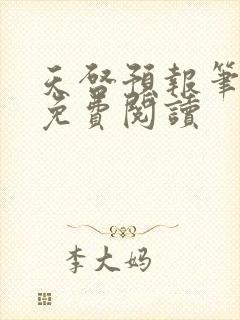 天啓預報筆
免費閱讀
李大妈